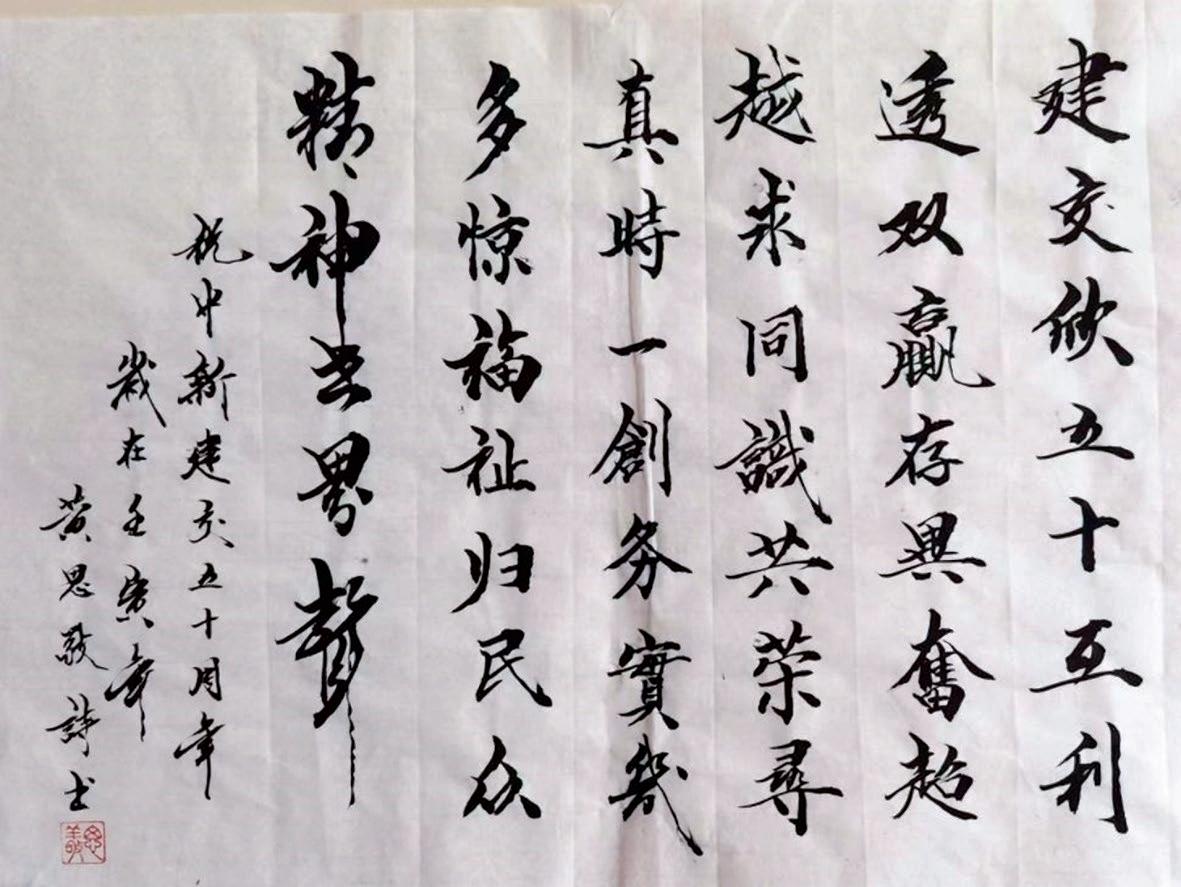 建交欣五十互利
透双赢存異奮超
越求同識共荣尋
真時一創务實幾
多惊福祉归民众
精神世界聲
祝中新建交五十周年
歲在壬寅年
黄思敬詩书